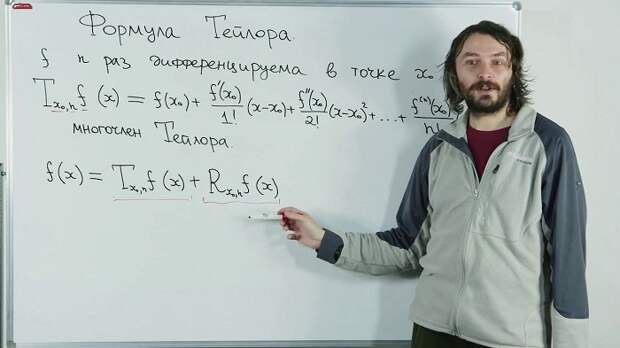 Формула Тейлора.
f n раз дифференцируема в точке x₀
T_{x₀,n} f (x) = f(x₀) + f'(x₀)/1! (x-x₀) + f''(x₀)/2! (x-x₀)² + ... + f⁽ⁿ⁾(x₀)/n!
многочлен Тейлора.
f(x) = T_{x₀,n} f (x) + R_{x₀,n} f (x)